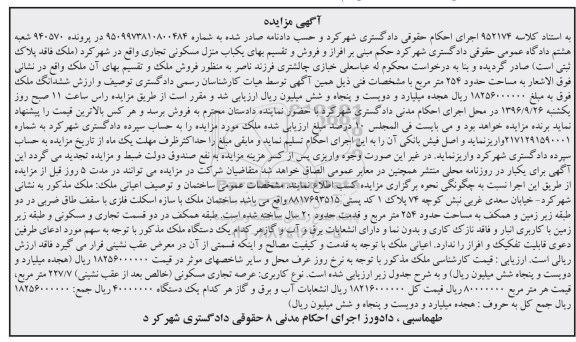 آگهی مزایده
به استناد کلاسه ۹۵۲۱۷۴ اجرای احکام حقوقی دادگستری شهرکرد و حسب دادنامه صادر شده به شماره ۹۵۰۹۹۷۳۸۱۰۸۰۰۴۸۴ در پرونده ۹۴۰۵۷۰ شعبه
هشتم دادگاه عمومی حقوقی دادگستری شهرکرد حکم مبنی بر افراز و فروش و تقسیم بهای یکباب منزل مسکونی تجاری واقع در شهرکرد (ملک فاقد پلاک
ثبتی است) صادر گردیده و بنا به درخواست محکوم له عباسعلی خبازی چالشتری فرزند ناصر به منظور فروش ملک و تقسیم بهای آن ملک واقع در نشانی
فوق الاشعار به مساحت حدود ۲۵۴ متر مربع با مشخصات فنی ذیل همین آگهی توسط هیات کارشناسان رسمی دادگستری توصیف و ارزش ششدانگ ملک
فوق به مبلغ ۱۸۲۵۶۰۰۰۰۰۰ ریال هجده میلیارد و دویست و پنجاه و شش میلیون ریال ارزیابی شد و مقرر است از طریق مزایده راس ساعت ۱۱ صبح روز
یکشنبه ۱۳۹۶/۹/۲۶ در محل اجرای احکام مدنی دادگستری شهرکرد با حضور نماینده دادستان محترم به فروش برسد و هر کس بالاترین قیمت را پیشنهاد
نماید برنده مزایده خواهد بود و می بایست فی المجلس ۱۰ درصد مبلغ ارزیابی شده ملک مورد مزایده را به حساب سپرده دادگستری شهرکرد به شماره
۲۱۷۱۲۹۱۵۹۰۰۰۱ واریزنماید و اصل فیش بانکی آن را به این اجرای احکام تسلیم نماید و مابقی مبلغ را حداکثرظرف مهلت یک ماه از تاریخ مزایده به حساب
سپرده دادگستری شهرکرد واریزنماید. در غیر این صورت وجوه واریزی پس از کسر هزینه مزایده به نفع صندوق دولت ضبط و مزایده تجدید می گردد این
آگهی برای یکبار در روزنامه محلی منتشر همچنین در معابر عمومی الصاق خواهد شد متقاضیان شرکت در مزایده می توانند در مدت ۵ روز قبل از مزایده
از طریق این اجرا نسبت به چگونگی نحوه برگزاری مزایده کسب اطلاع نمایند. مشخصات عمومی ساختمان و توصیف اعیانی ملک: ملک مذکور به نشانی
شهرکرد– خیابان سعدی غربی نبش کوچه ۷۴ پلاک ۱ کد پستی ۸۸۱۷۶۹۳۵۱۵ واقع می باشد ساختمان ملک با سازه اسکلت فلزی با سقف طاق ضربی در دو
طبقه زیر زمین و همکف به مساحت حدود ۲۵۴ متر مربع و قدمت حدود ۲۰ سال ساخته شده است. طبقه همکف در دو قسمت تجاری و مسکونی و طبقه زیر
زمین با کاربری انبار و فاقد نازک کاری و بدون نما و دارای انشعابات برق و آب و گازهر کدام یک دستگاه ملک مذکور با توجه به سهم مورد ادعای طرفین
دعوی قابلیت تفکیک و افراز را ندارد. اعیانی ملک با توجه به قدمت و کیفیت مصالح و اینکه قسمتی از آن در معرض عقب نشینی قرار می گیرد فاقد ارزش
ریالی است. ارزیابی : قیمت کارشناسی ملک مذکور با توجه به نرخ روز عرف محل و سایر شاخصهای موثر در قیمت ۱۸۲۵۶۰۰۰۰۰۰ ریال (هجده میلیارد و
دویست و پنجاه شش میلیون ریال) و به شرح جدول زیر ارزیابی شده است. نوع کاربری: عرصه تجاری مسکونی (خالص بعد از عقب نشینی) ۲۲۷/۷ متر مربع،
قیمت هر متر مربع ۸۰۰۰۰۰۰۰ ریال قیمت کل ۱۸۲۱۶۰۰۰۰۰۰ ریال انشعابات آب و برق و گاز هر کدام یک دستگاه ۴۰۰۰۰۰۰۰ ریال جمع: ۱۸۲۵۶۰۰۰۰۰۰
ریال جمع کل به حروف : هجده میلیارد و دویست و پنجاه و شش میلیون ریال)
طهماسبی ، دادورز اجرای احکام مدنی ۸ حقوقی دادگستری شهرکر د